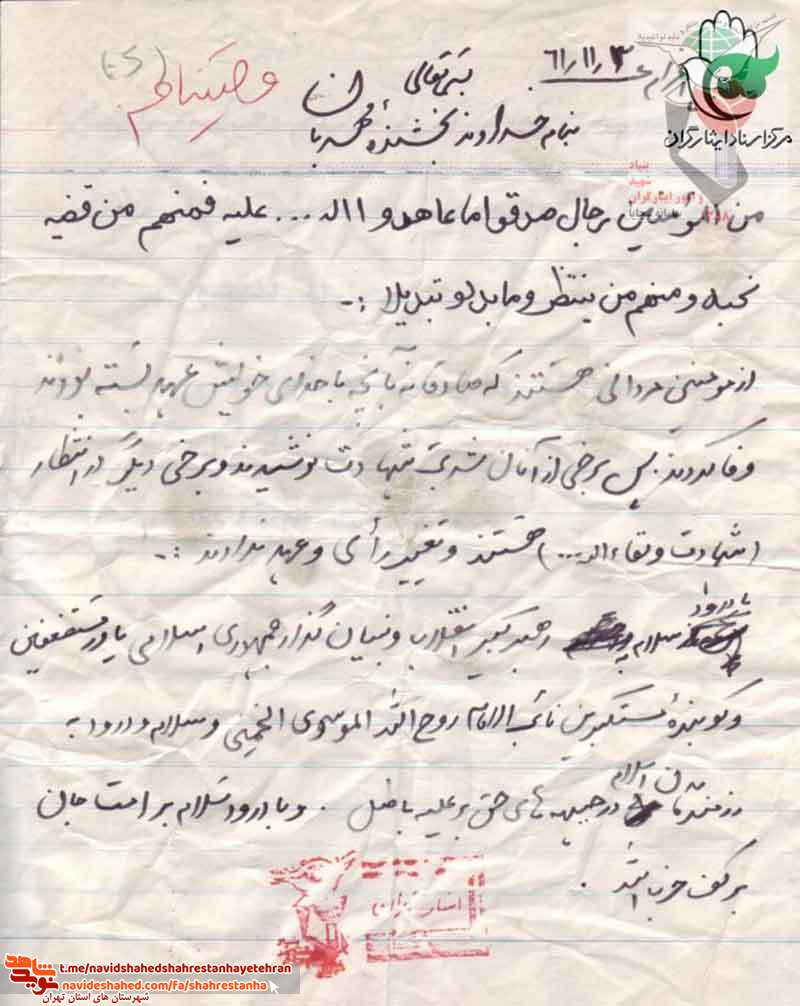 وصیتنامه
۶۱/۱۱/۳
بسمه تعالی
بنام خداوند بخشنده مهربان
مرکز اسناد ایثارگران
بنیاد
شهید
و امور ایثارگران
من المؤمنین رجال صدقوا ما عاهدوا الله... علیه فمنهم من قضیه
نحبه و منهم من ینتظر و ما بدلو تبدیلا :-
از مومنین مردانی هستند که صادقانه بآنچه با خدای خویش عهد بسته بودند
وفا کردند پس برخی از آنان شربت شهادت نوشیدند و برخی دیگر در انتظار
(شهادت و لقاء الله...) هستند و تغییر رأی و عهد ندادند :-
با درود
سلام رهبر کبیر انقلاب و بنیان گذار جمهوری اسلامی یاور مستضعفین
و کوبندهٔ مستکبرین نائب الامام روح الله الموسوی الخمینی و سلام و درود به
رزمندگان اسلام در جبهه های حق بر علیه باطل . و با درود سلام بر امت جان
بر کف حزب الله .
اسناد
نوید شاهد
t.me/navidshahedshahrestanhayetehran
navideshahed.com/fa/shahrestanha
شهرستان های استان تهران